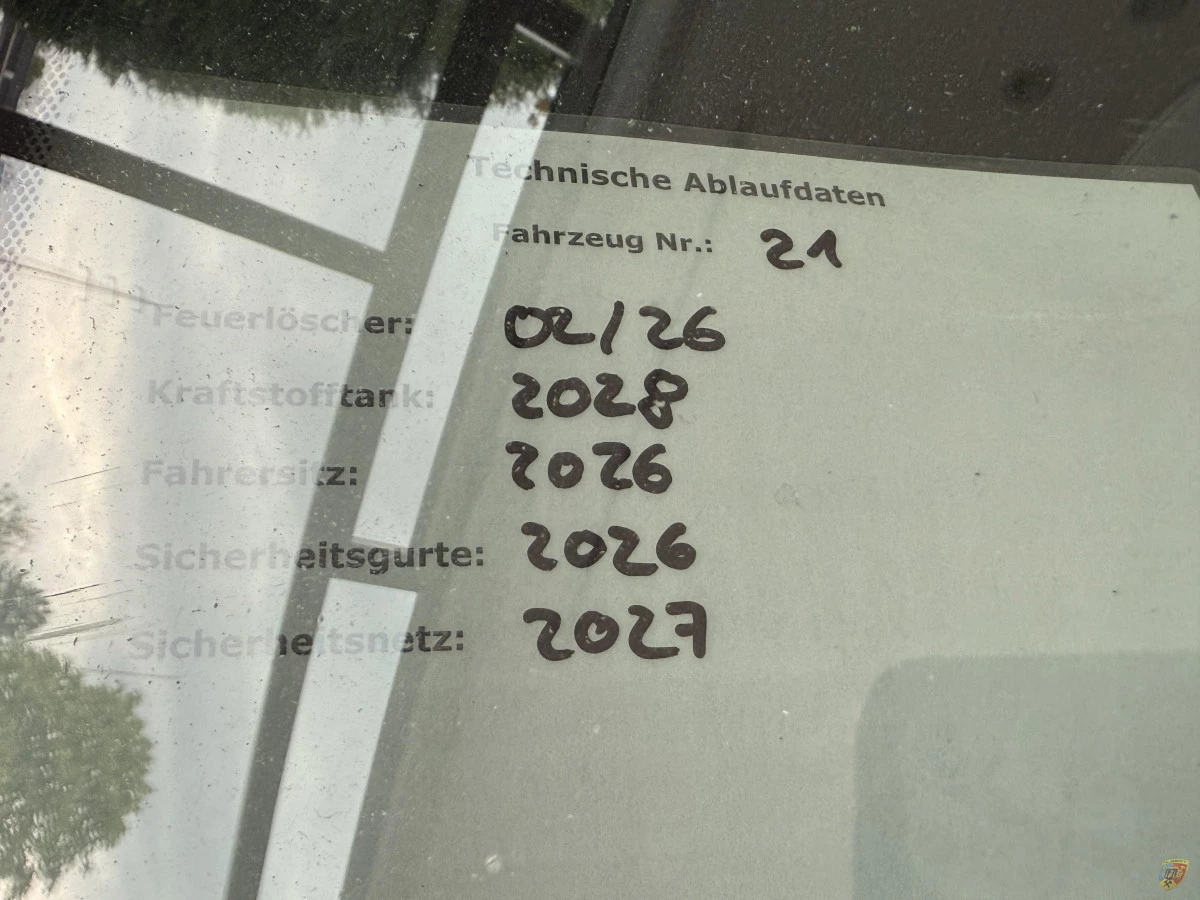 Technische Ablaufdaten
Fahrzeug Nr.: 21
Feuerlöscher: 02/26
Kraftstofftank: 2028
Fahrersitz: 2026
Sicherheitsgurte: 2026
Sicherheitsnetz: 2027